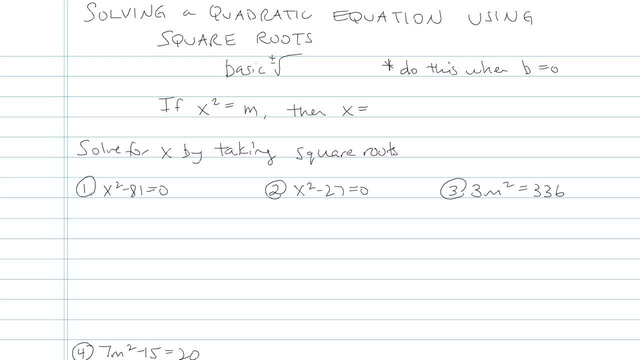 SOLVING a QUADRATIC EQUATION USING
SQUARE ROOTS
basic ±√ * do this when b=0
If x²= m, then x=
Solve for x by taking square roots
① x²-81=0 ② x²-27=0 ③ 3m²=336
④ 7m²-15=20